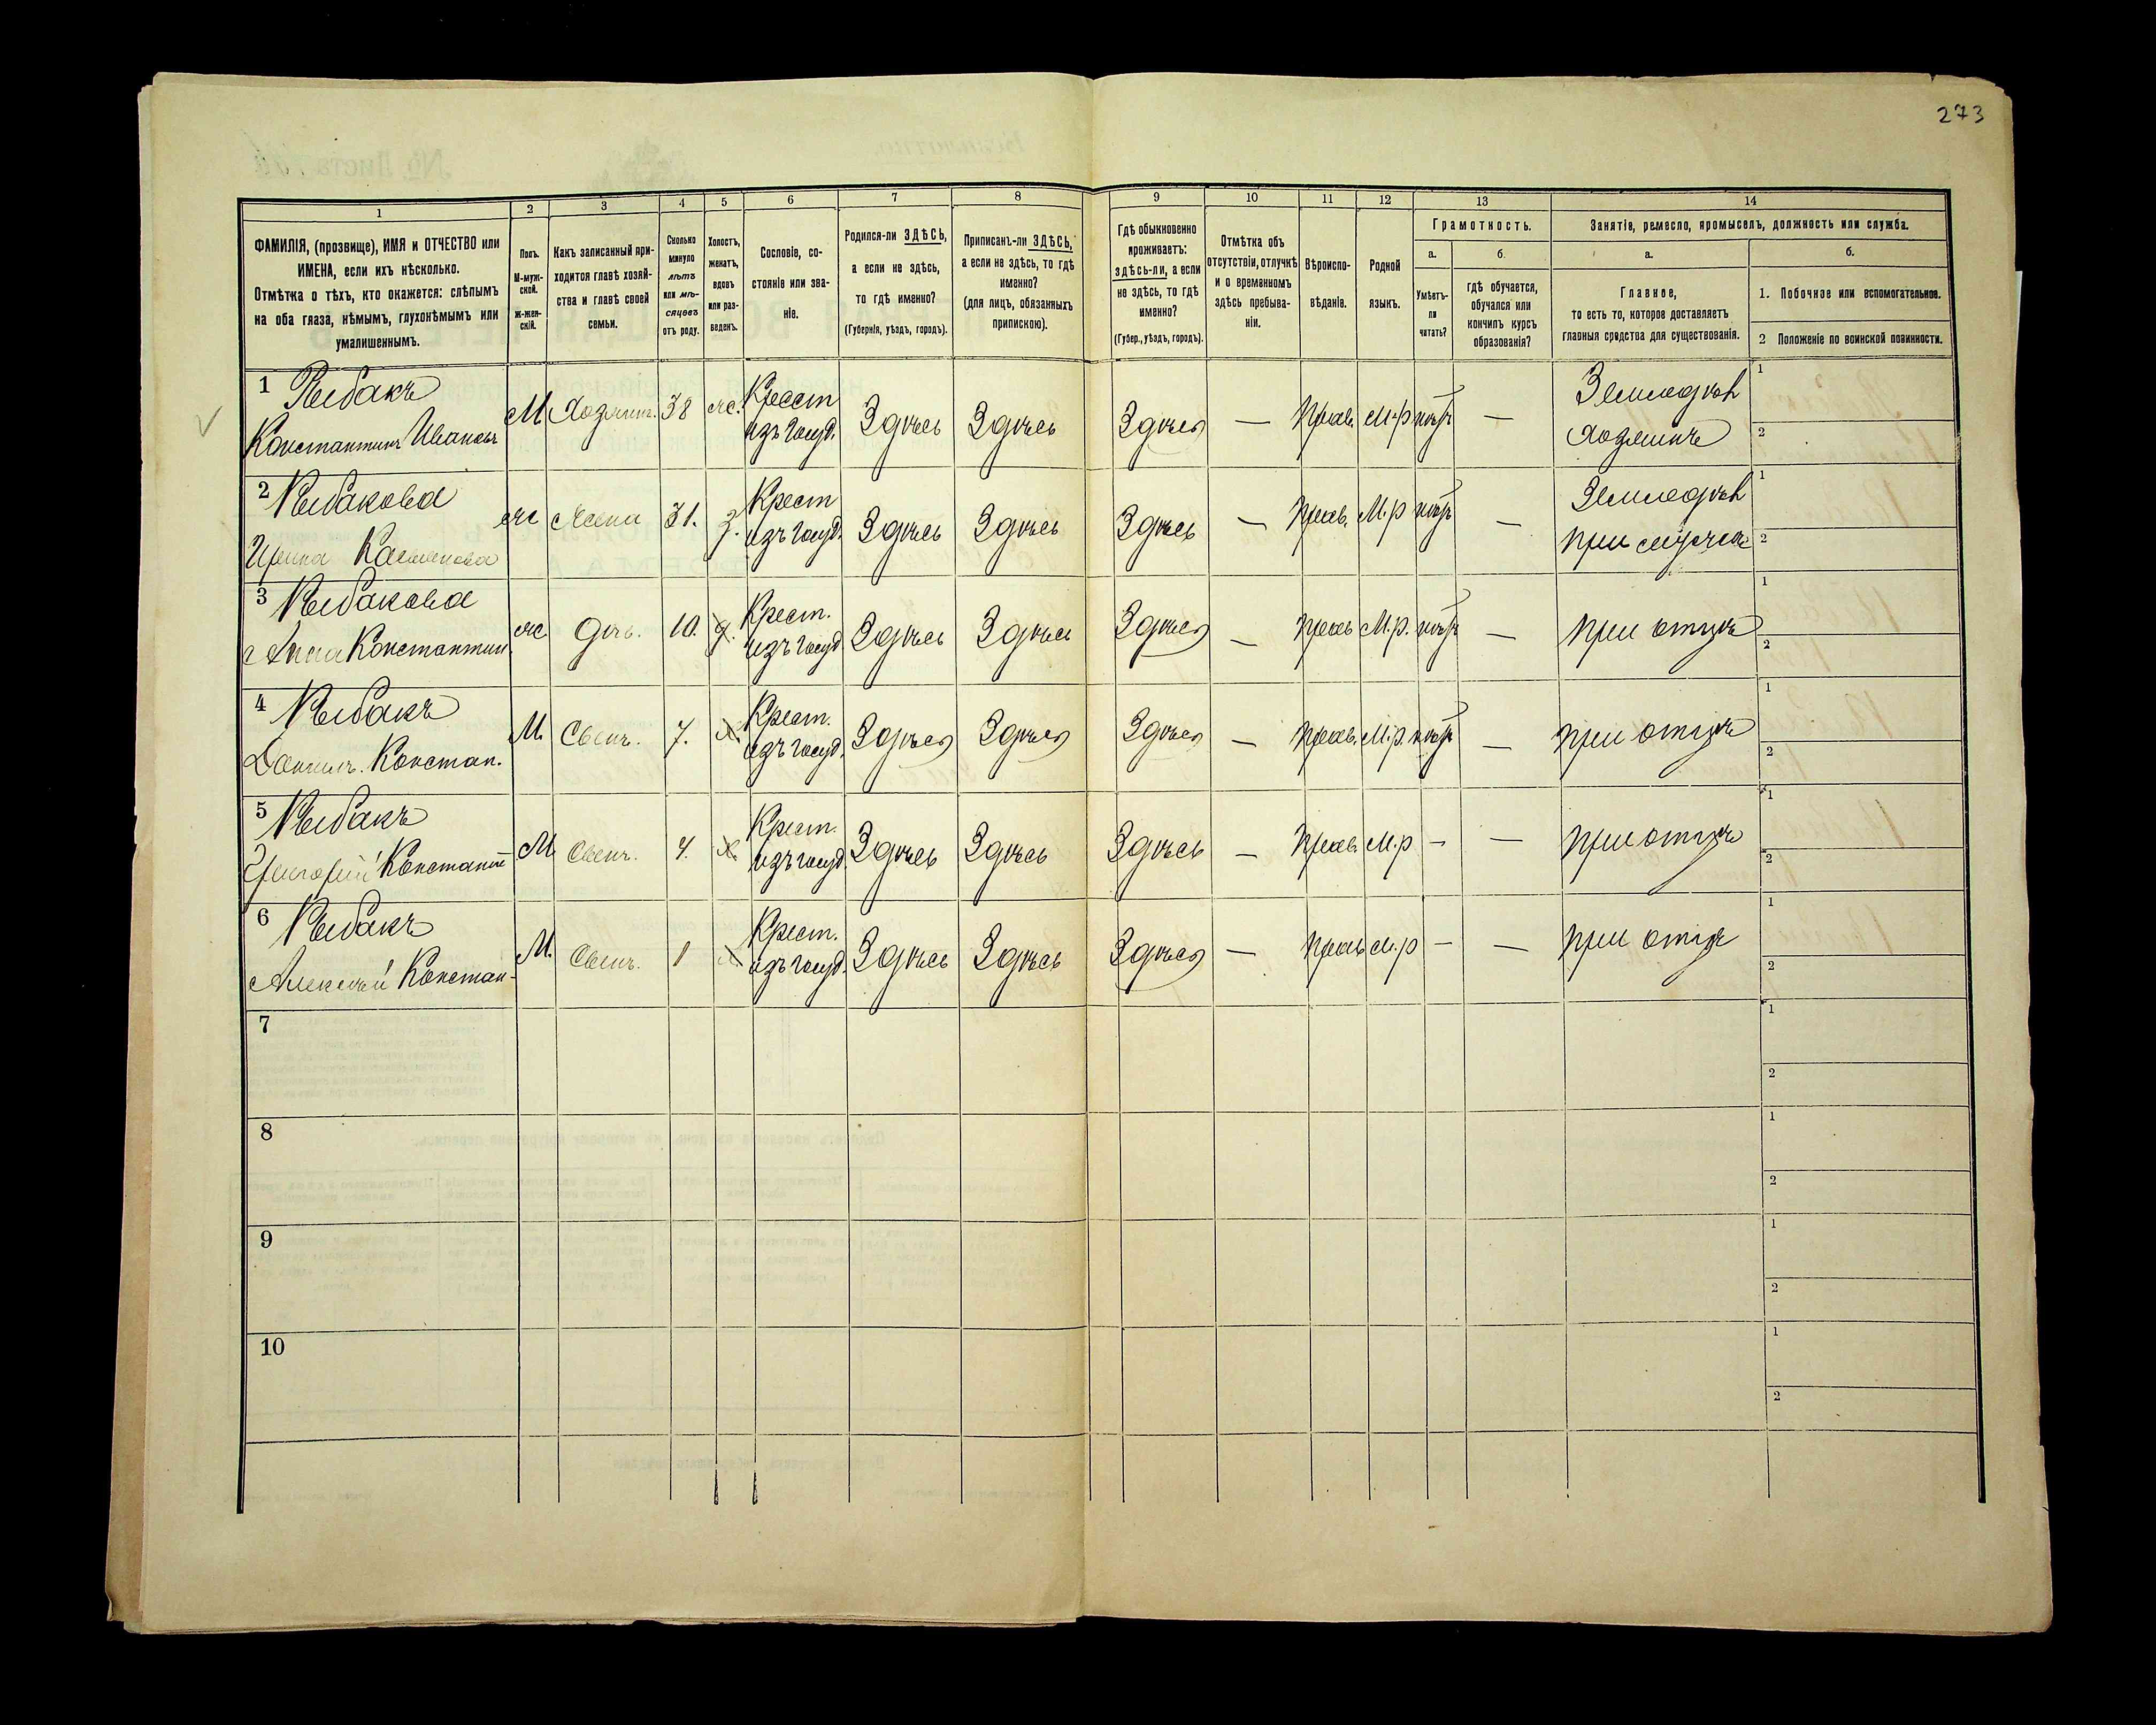 273
1 2 3 4 5 6 7 8 9 10 11 12 13 14
ФАМИЛІЯ, (прозвище), ИМЯ и ОТЧЕСТВО или
ИМЕНА, если ихъ нѣсколько.
Отмѣтка о тѣхъ, кто окажется: слѣпымъ
на оба глаза, нѣмымъ, глухонѣмымъ или
умалишеннымъ.
Полъ.
М-муж-
ской.
ж-жен-
скій.
Какъ записанный при-
ходится главѣ хозяй-
ства и главѣ своей
семьи.
Сколько
минуло
лѣтъ
или мѣ-
сяцевъ
отъ роду.
Холостъ,
женатъ,
вдовъ
или раз-
веденъ.
Сословіе, со-
стояніе или зва-
ніе.
Родился-ли ЗДѢСЬ,
а если не здѣсь,
то гдѣ именно?
(Губернія, уѣздъ, городъ).
Приписанъ-ли ЗДѢСЬ,
а если не здѣсь, то гдѣ
именно?
(для лицъ, обязанныхъ
припискою).
Гдѣ обыкновенно
проживаетъ:
здѣсь-ли, а если
не здѣсь, то гдѣ
именно?
(Губер., уѣздъ, городъ).
Отмѣтка объ
отсутствіи, отлучкѣ
и о временномъ
здѣсь пребыва-
ніи.
Вѣроиспо-
вѣданіе.
Родной
языкъ.
Грамотность.
а.
Умѣетъ-
ли
читать?
б.
гдѣ обучается,
обучался или
кончилъ курсъ
образованія?
Занятіе, ремесло, промыселъ, должность или служба.
а.
Главное,
то есть то, которое доставляетъ
главныя средства для существованія.
б.
1. Побочное или вспомогательное.
2 Положеніе по воинской повинности.
1 Рыбакъ
Константинъ Ивановъ
М. Хозяин. 38 ж. Крест
изъ госуд. Здѣсь Здѣсь Здѣсь — Прав. М.р нѣтъ — Земледѣл
Хозяинъ
1
2
2 Рыбакова
Ирина
ж Жена 31. З. Крест
изъ госуд. Здѣсь Здѣсь Здѣсь — Прав. М.р нѣтъ — Земледѣл
при мужѣ
1
2
3 Рыбакова
Анна Константин
ж дочь. 10. Крест.
изъ госуд Здѣсь Здѣсь Здѣсь — Прав М.р. нѣтъ — при отцѣ
1
2
4 Рыбакъ
Данилъ. Констан.
М. Сынъ. 7. х. Крест.
изъ госуд. Здѣсь Здѣсь Здѣсь — Прав. М.р. нѣтъ — при отцѣ
1
2
5 Рыбакъ
Григорій Константі
М Сынъ. 4. х. Крест.
изъ госуд. Здѣсь Здѣсь Здѣсь — Прав. М.р — — при отцѣ
1
2
6 Рыбакъ
Алексѣй Констан-
М. Сынъ. 1 х. Крест.
изъ госуд. Здѣсь Здѣсь Здѣсь — Прав М.р — — при отцѣ
1
2
7
1
2
8
1
2
9
1
2
10
1
2